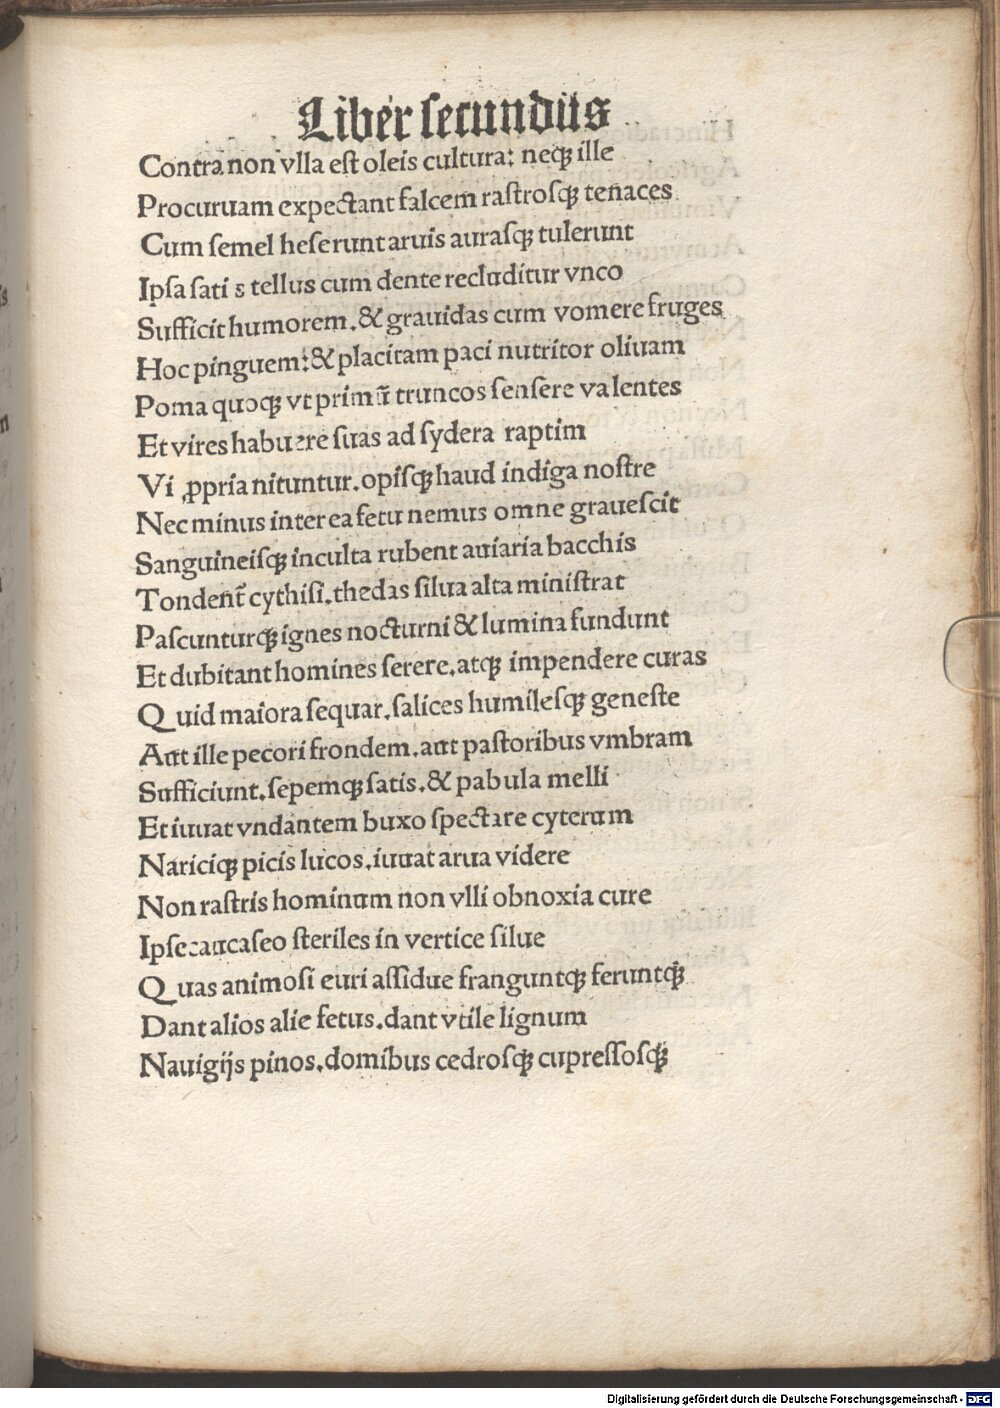 Liber secundus
Contra non vlla est oleis cultura: neqꝫ ille
Procuruam expectant falcem rastrosqꝫ tenaces
Cum semel heserunt aruis aurasqꝫ tulerunt
Ipsa satis tellus cum dente recluditur vnco
Sufficit humorem.& grauidas cum vomere fruges
Hoc pinguem:& placitam paci nutritor oliuam
Poma quoqꝫ vt primū truncos sensere valentes
Et vires habuere suas ad sydera raptim
Vi ꝓpria nituntur.opisqꝫ haud indiga nostre
Nec minus interea fetu nemus omne grauescit
Sanguineisqꝫ inculta rubent auiaria bacchis
Tondent̄ cythisi.thedas silua alta ministrat
Pascunturqꝫ ignes nocturni & lumina fundunt
Et dubitant homines serere.atqꝫ impendere curas
Quid maiora sequar.salices humilesqꝫ geneste
Aut ille pecori frondem.aut pastoribus vmbram
Sufficiunt.sepemqꝫ satis.& pabula melli
Et iuuat vndantem buxo spectare cyterum
Nariciqꝫ picis lucos.iuuat arua videre
Non rastris hominum non vlli obnoxia cure
Ipse caucaseo steriles in vertice silue
Quas animosi euri assidue franguntqꝫ feruntqꝫ
Dant alios alie fetus.dant vtile lignum
Nauigijs pinos.domibus cedrosqꝫ cupressosqꝫ
Digitalisierung gefördert durch die Deutsche Forschungsgemeinschaft - DFG